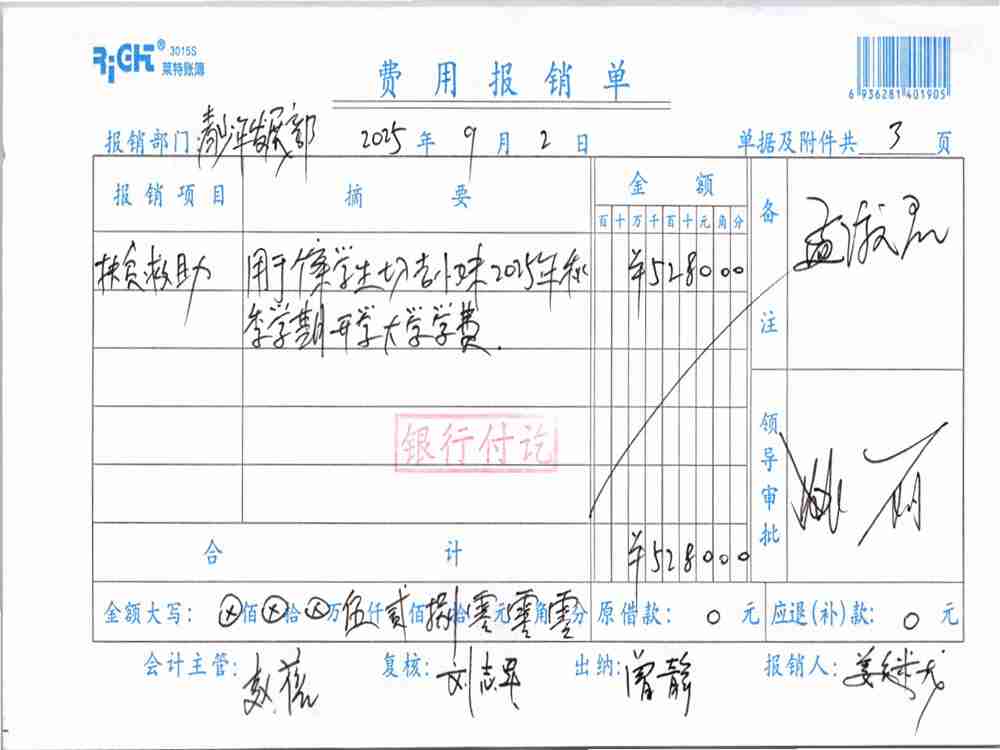 RiGHT® 3015S
莱特账簿
费用报销单
6 936281 401905
报销部门: 青少年发展部 2025 年 9 月 2 日 单据及附件共 3 页
报销项目 摘要 金额 备注
百 十 万 千 百 十 元 角 分
扶贫救助 用于 学生切吉卜 2025年秋 ¥528000
季学期开学大学学费.
银行付讫
领导审批
合计 ¥528000
金额大写: ⊗佰⊗拾⊗万伍仟贰佰捌拾零元零角零分 原借款: 0 元 应退(补)款: 0 元
会计主管: 复核: 刘志 出纳: 曾静 报销人: 姜